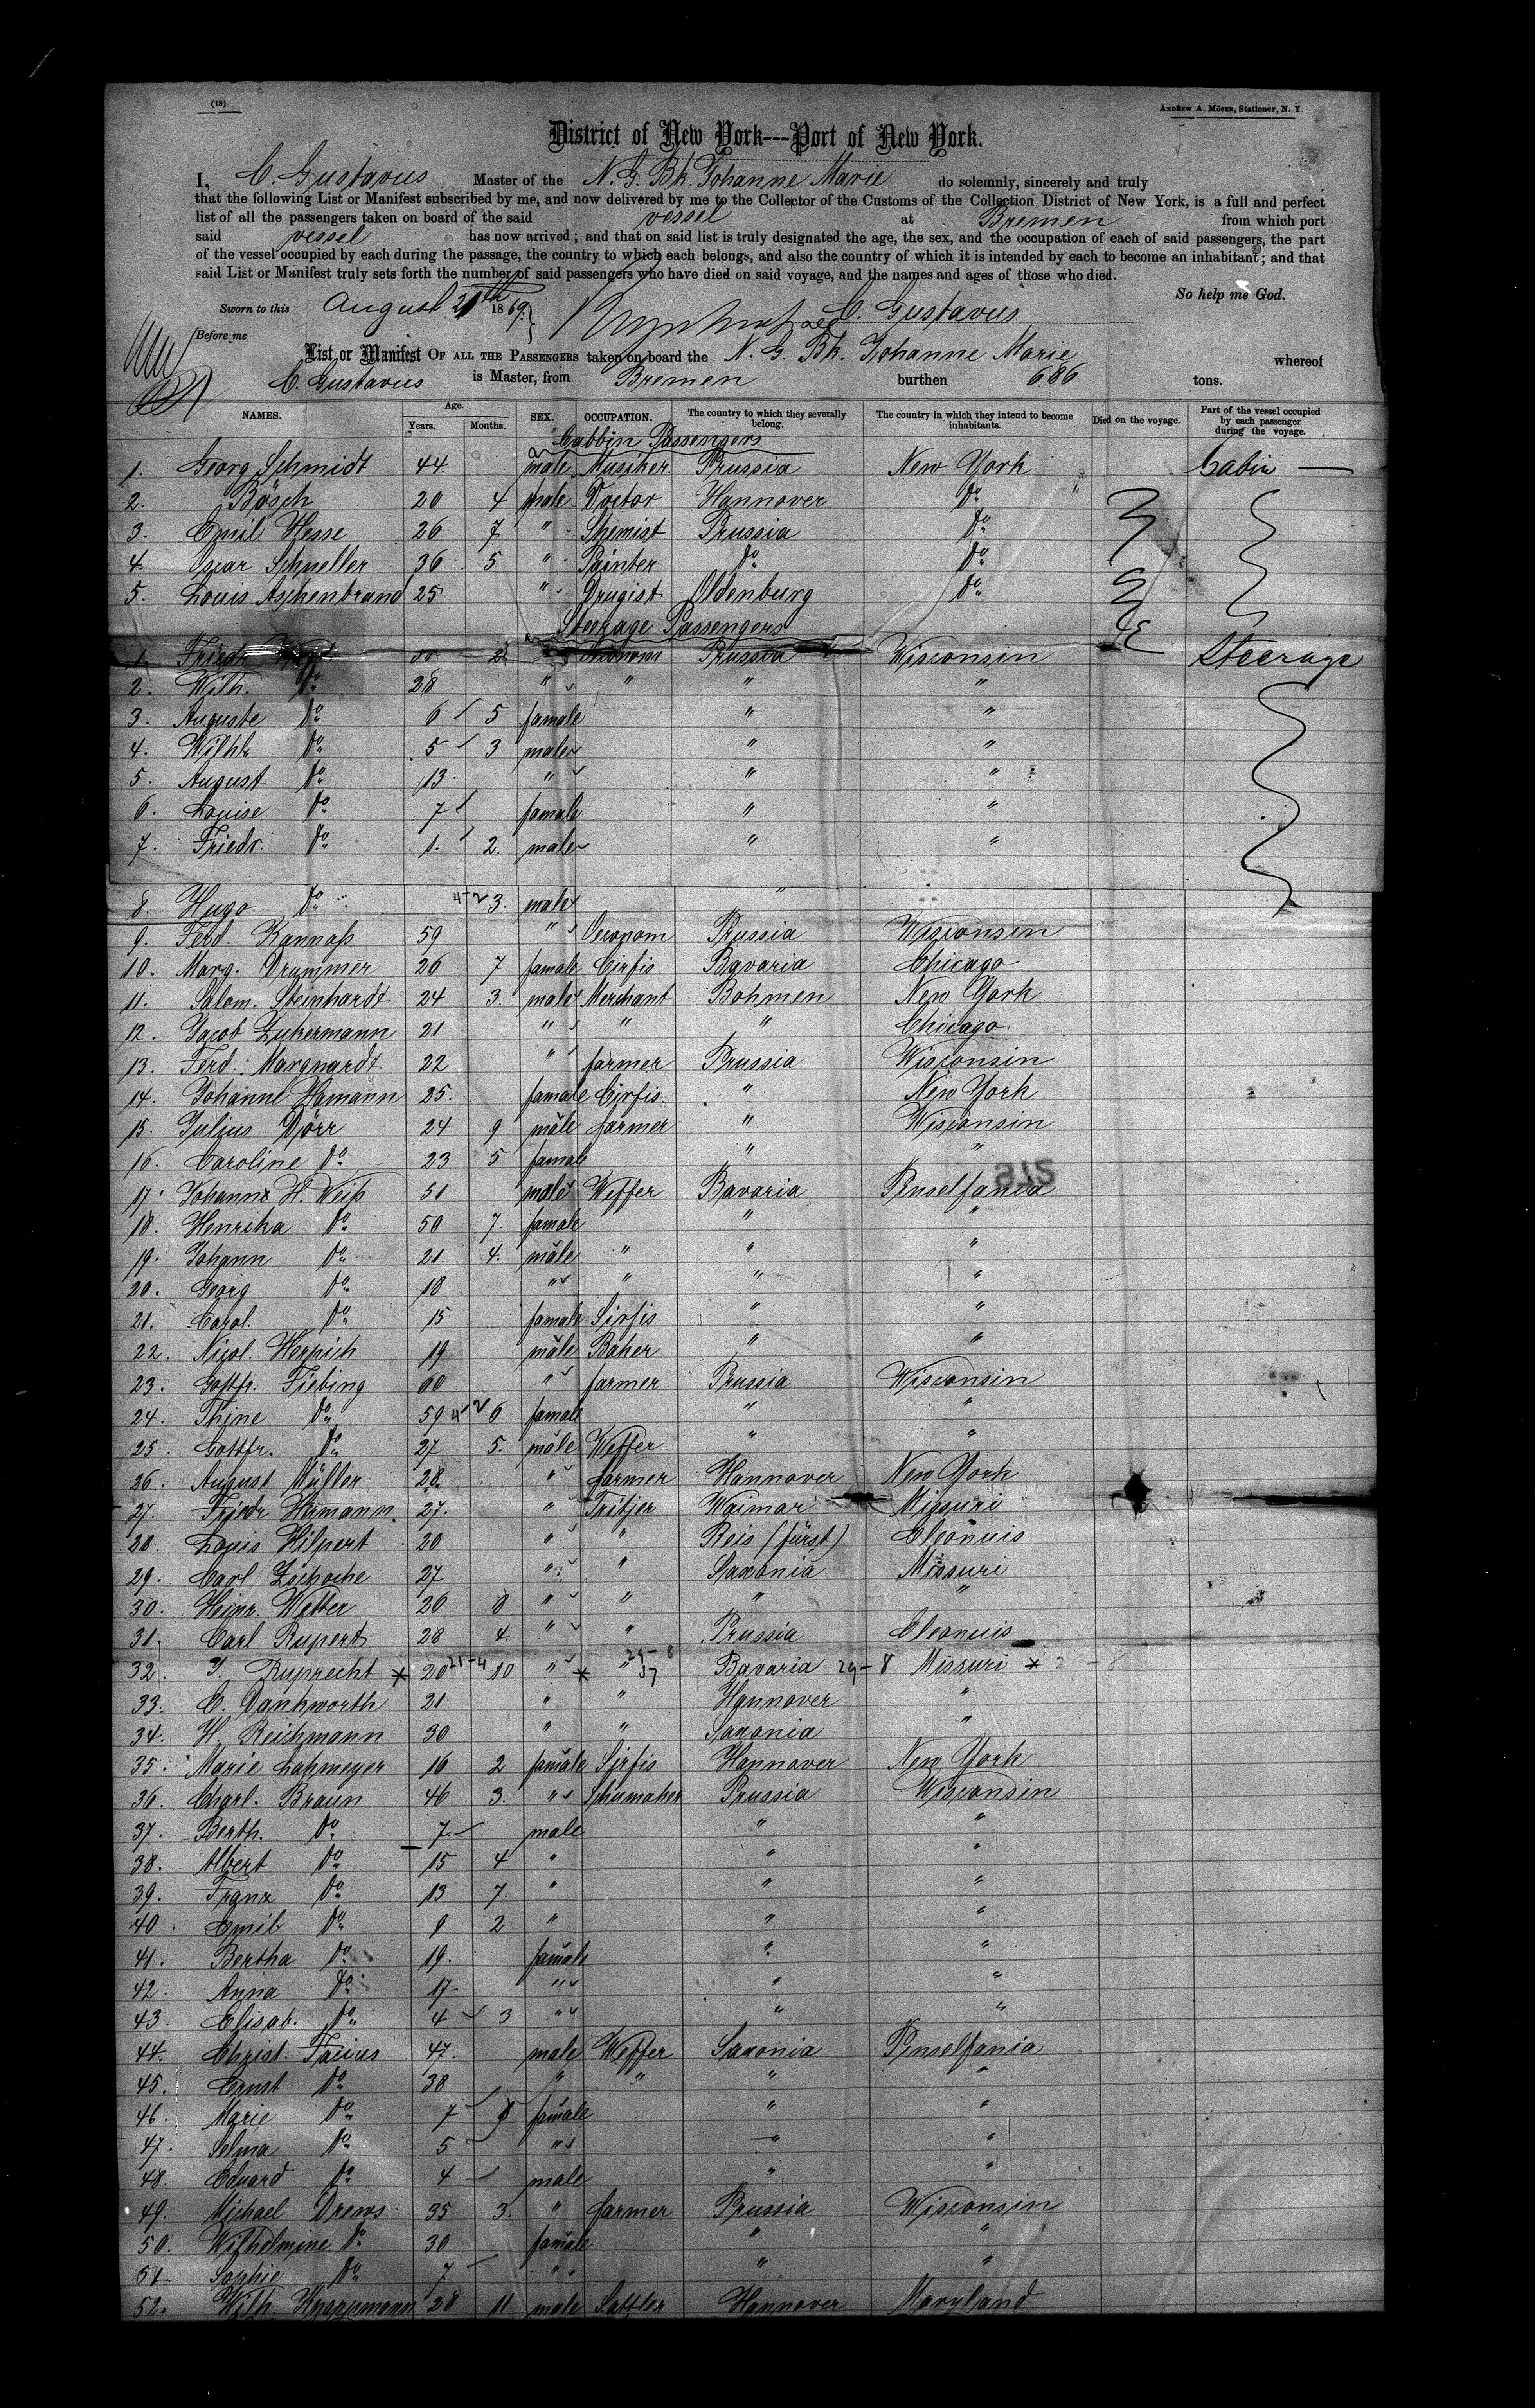 (18)
ANDREW A. MÖSER, Stationer, N. Y.
District of New York---Port of New York.
I, C. Gustavus Master of the N. G. Bk. Johanne Marie do solemnly, sincerely and truly
that the following List or Manifest subscribed by me, and now delivered by me to the Collector of the Customs of the Collection District of New York, is a full and perfect
list of all the passengers taken on board of the said vessel at Bremen from which port
said vessel has now arrived; and that on said list is truly designated the age, the sex, and the occupation of each of said passengers, the part
of the vessel occupied by each during the passage, the country to which each belongs, and also the country of which it is intended by each to become an inhabitant; and that
said List or Manifest truly sets forth the number of said passengers who have died on said voyage, and the names and ages of those who died.
So help me God.
Sworn to this August 21th 1869. C. Gustavus
Before me
List or Manifest OF ALL THE PASSENGERS taken on board the N. G. Bk. Johanne Marie whereof
C. Gustavus is Master, from Bremen burthen 686 tons.
NAMES. Age. Years. Months. SEX. OCCUPATION. The country to which they severally belong. The country in which they intend to become inhabitants. Died on the voyage. Part of the vessel occupied by each passenger during the voyage.
Cabbin Passengers
1. Georg Schmidt 44 male Musiker Prussia New York Cabin —
2. Bösch 20 4 male Doctor Hannover Do
3. Emil Hesse 26 7 " Shemist Prussia Do
4. Oscar Schneller 36 5 " Painter Do Do
5. Louis Aschenbrand 25 " Drugist Oldenburg Do
Steerage Passengers
1. Friedr. 2 Prussia Wisconsin Steerage
2. Wilh. Do 28 " " " "
3. Auguste Do 6 5 famale " "
4. Wilhl. Do 5 3 male " "
5. August Do 13 " " "
6. Louise Do 7 famale " "
7. Friedr. Do 1. 2. male " "
8. Hugo Do 3. male "
9. Ferd. Kannass 59 " Oeconom Prussia Wisconsin
10. Marg. Drummer 26 7 famale Cirfis Bavaria Chicago
11. Salom. Steinhardt 24 3. male Merchant Bohmen New York
12. Jacob Zukermann 21 " " " Chicago
13. Ferd. Margnardt 22 " farmer Prussia Wisconsin
14. Johanne Hamann 25. famale Cirfis. " New York
15. Julius Dörr 24 9 male farmer " Wisconsin
16. Caroline Do 23 5 famale " "
17. Johann H. Weiss 51 male Weffer Bavaria Penselfania
18. Henrika Do 50 7. famale " "
19. Johann Do 21. 4. male " " "
20. Georg Do 18 " " " "
21. Carol. Do 15 famale Sirfis " "
22. Nicol. Herpich 19 male Baker " "
23. Gottfr. Fiebing 60 " farmer Prussia Wisconsin
24. Thine Do 59 6 famale " "
25. Gottfr. Do 27 5. male Weffer " "
26. August Müller 28. " farmer Hannover New York
27. Friedr Hermann. 27. " Tritjer Waimar Missuri
28. Louis Hilpert 20 " " Reis (fürst) Cleonuis
29. Carl Zschoche 27 " " Saxonia Missuri
30. Heinr. Wetter 26 8 " " " "
31. Carl Rupert 28 4. " " Prussia Cleonuis
32. J. Ruprecht * 20 21-4 10 " * " Bavaria 29-8 Missuri *
33. C. Dankworth 21 " " Hannover "
34. H. Reichmann 30 " " Saxonia "
35. Marie Lahmeyer 16 2 famale Sirfis Hannover New York
36. Charl. Braun 46 3. " Schumaker Prussia Wisconsin
37. Berth. Do 7 male " "
38. Albert Do 15 4 " " "
39. Franz Do 13 7. " " "
40. Emil Do 9 2 " " "
41. Bertha Do 19. famale " "
42. Anna Do 17 " " "
43. Elisab. Do 4 3 " " "
44. Christ. Facius 47. male Weffer Saxonia Penselfania
45. Ernst Do 38 " " " "
46. Marie Do 7 9 famale " "
47. Selma Do 5 " " "
48. Eduard Do 4 male " "
49. Michael Drews 35 3. " farmer Prussia Wisconsin
50. Wilhelmine Do 30 famale " "
51. Sophie Do 7 " " "
52. Wilh. 28 11 male Sattler Hannover Maryland